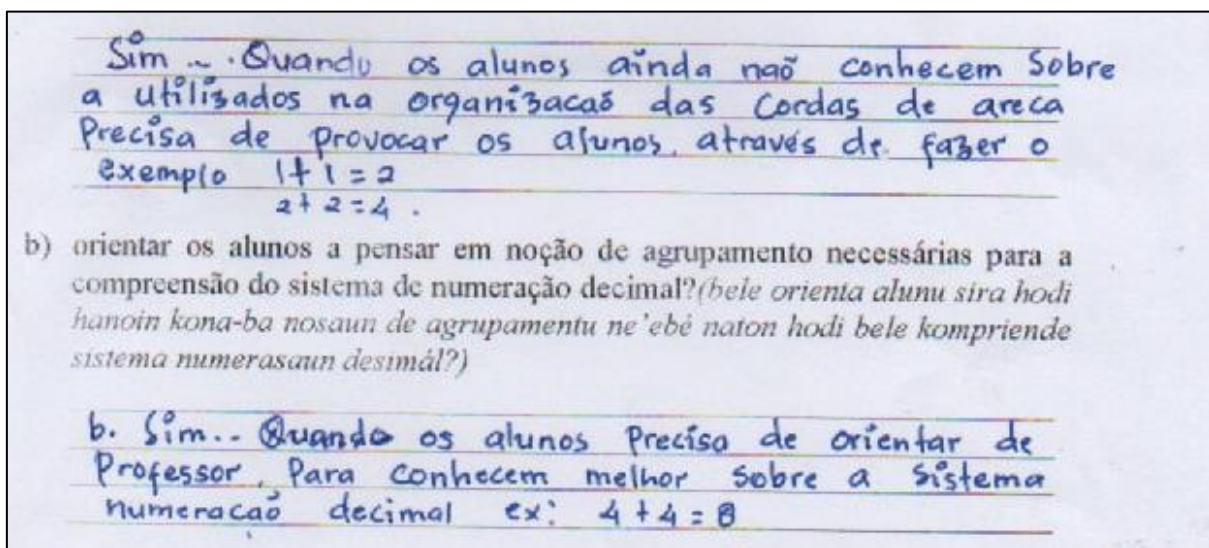 Sim .. . Quando os alunos ainda naõ conhecem Sobre
a utilizados na organizacaõ das Cordas de areca
Precisa de provocar os alunos, através de fazer o
exemplo 1+1=2
2+2=4.
b) orientar os alunos a pensar em noção de agrupamento necessárias para a
compreensão do sistema de numeração decimal?(bele orienta alunu sira hodi
hanoin kona-ba nosaun de agrupamentu ne'ebé naton hodi bele kompriende
sistema numerasaun desimál?)
b. Sim.. Quando os alunos Precisa de orientar de
Professor, Para conhecem melhor Sobre a Sistema
numeracaõ decimal ex: 4+4=8